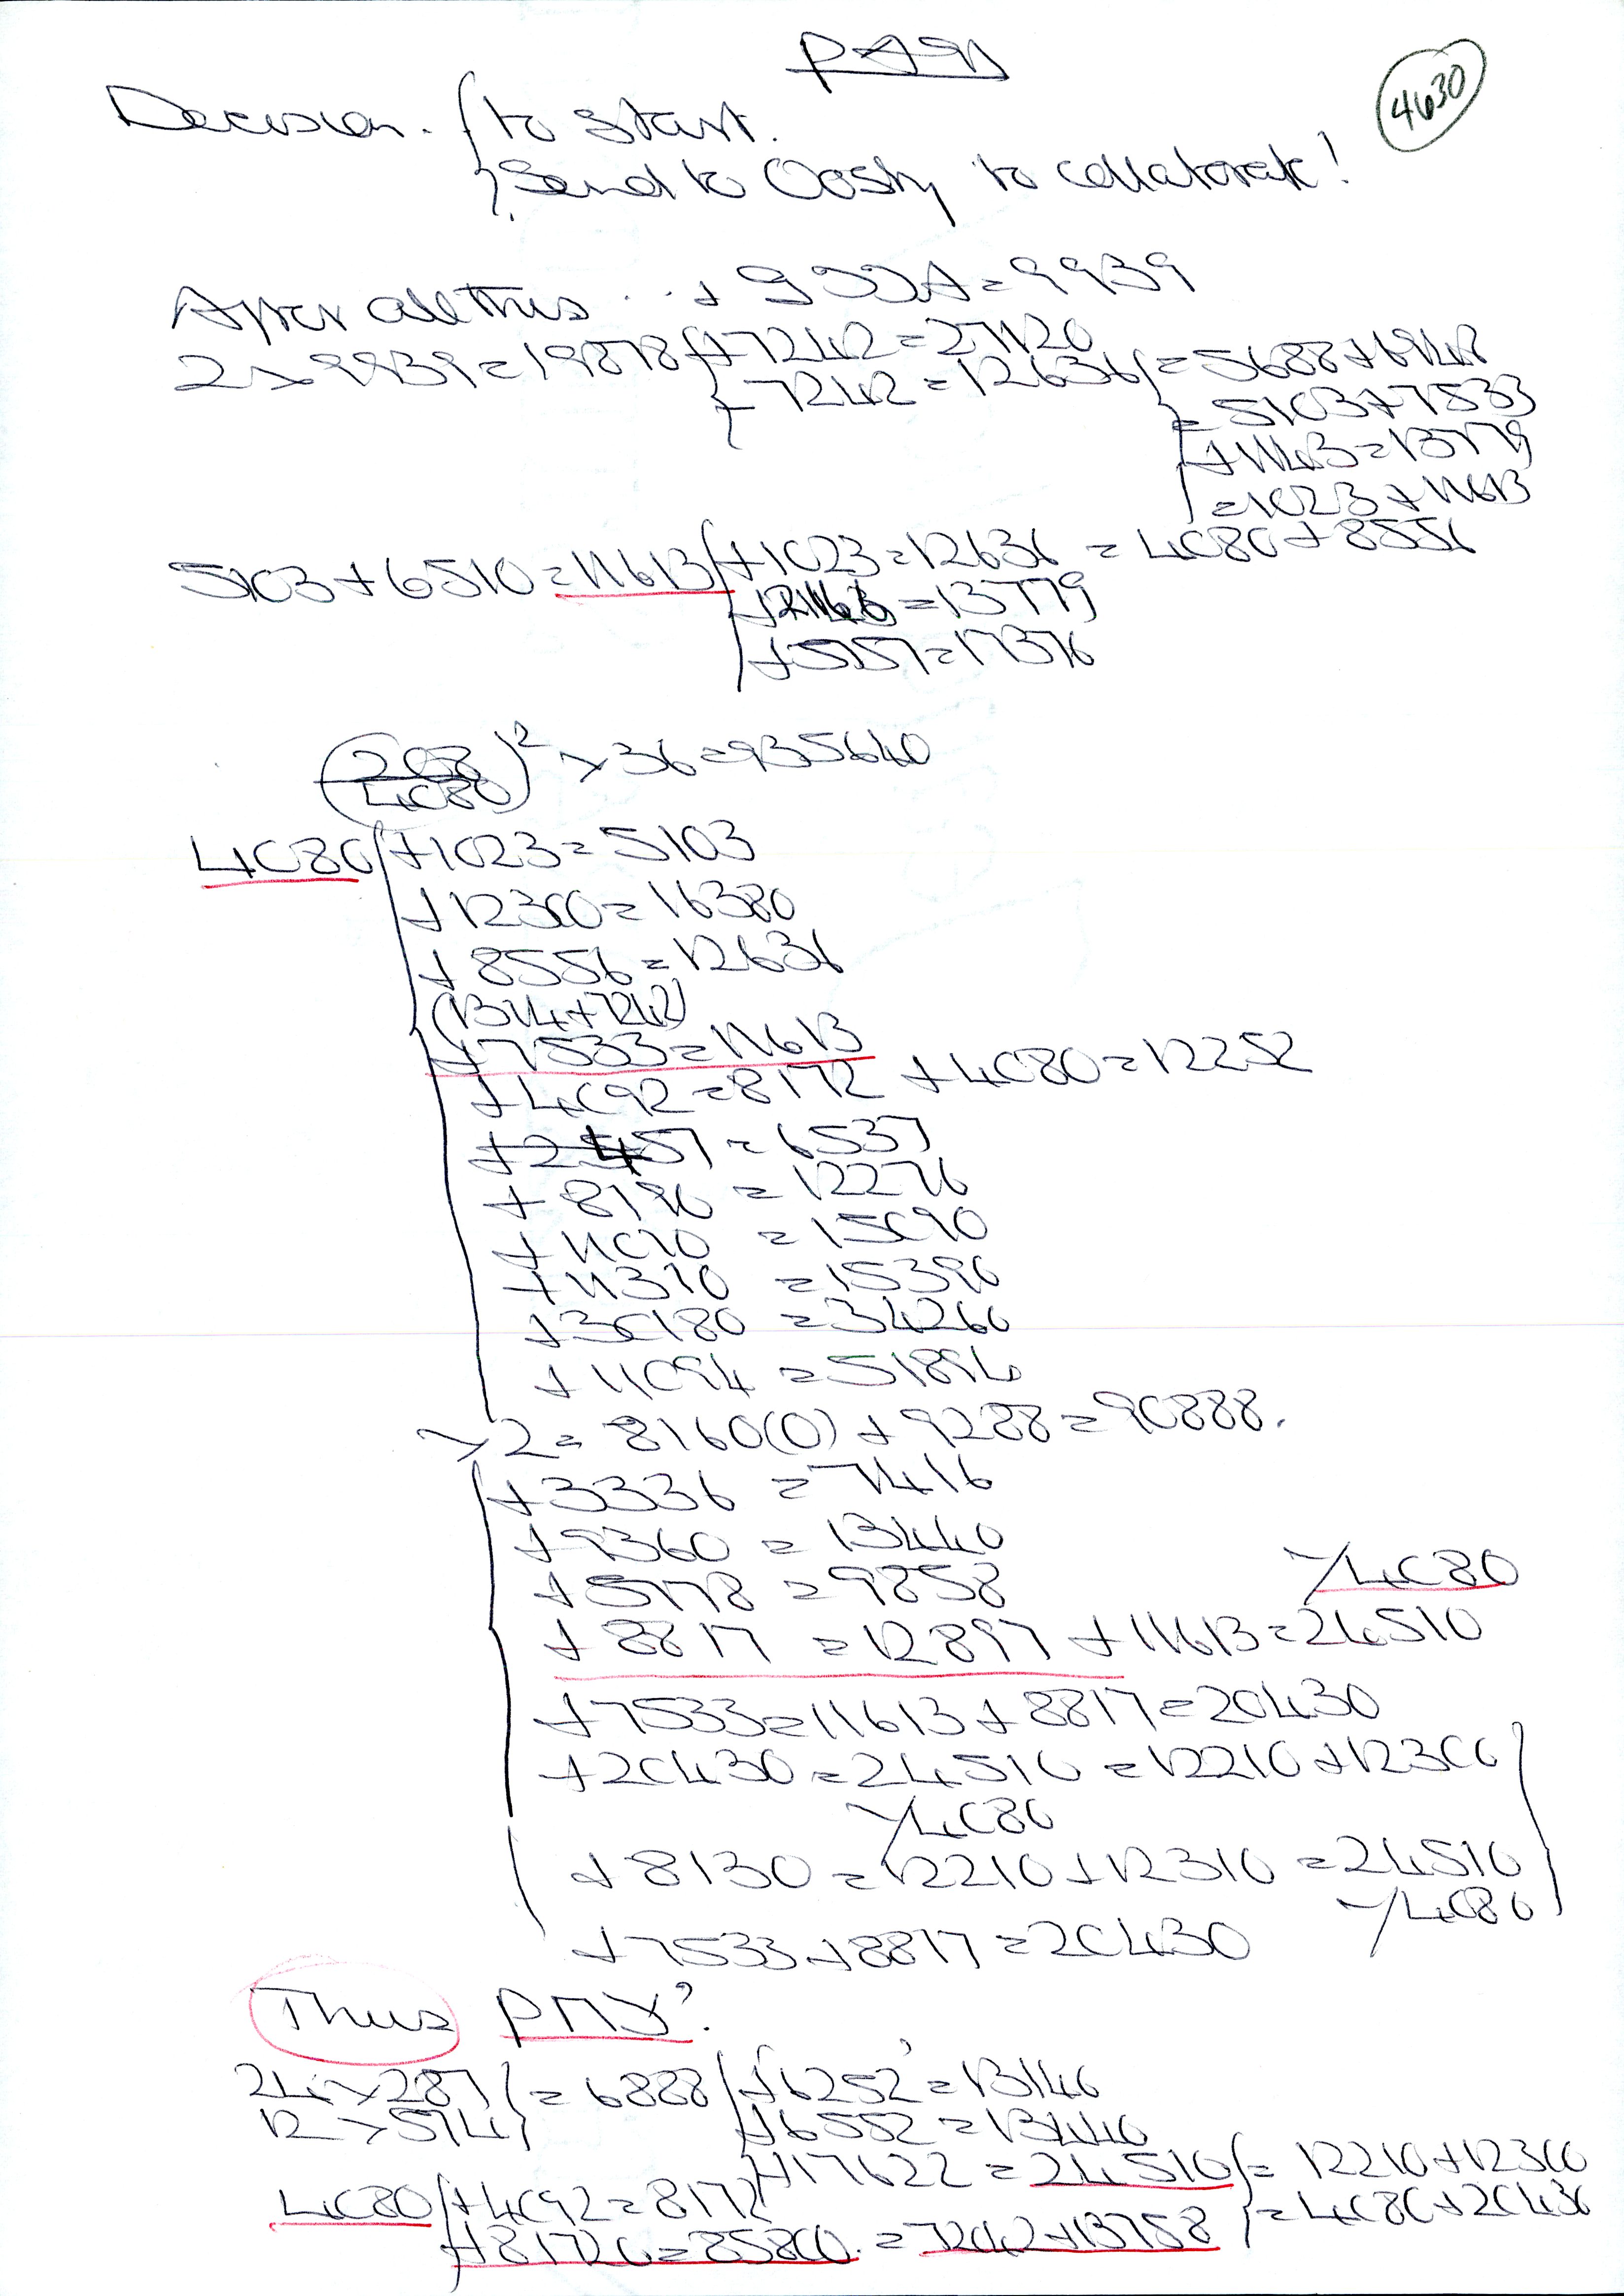 4630
Decision. { to start.
Send to Ooshy to collaborate!
After all this .. + = 9939
2 × 9939 = 19878 { + 7242 = 27120
- 7242 = 12636 { = 5688 + 6948
= 5103 + 7533
+ 1143 = 13779
= 1023 + 11613
5103 + 6510 = 11613 { + 1023 = 12636 = 4080 + 8556
= 13779
+ 5757 = 17370
( / 4080)² × 36 = 935640
4080 { + 1023 = 5103
+ 12300 = 16380
+ 8556 = 12636
(1314 + 7242)
+ 7533 = 11613
+ 4092 = 8172 + 4080 = 12252
+ 2457 = 6537
+ 8196 = 12276
+ 11010 = 15090
+ 11310 = 15390
+ 30180 = 34260
+ 11094 = 51894
× 2 = 8160(0) + 9288 = 90888.
+ 3336 = 7416
+ 9360 = 13440
+ 5778 = 9858
Y4080
+ 8817 = 12897 + 11613 = 24510
+ 7533 = 11613 + 8817 = 20430
+ 20430 = 24510 = 12210 + 12300
Y4080
+ 8130 = 12210 + 12310 = 24510
Y4080
+ 7533 + 8817 = 20430
Thus
24 × 287 } = 6888 { + 6252 = 13140
12 × 574 + 6552 = 13440
+ 17622 = 24510 { = 12210 + 12300
4080 { + 4092 = 8172 = 4080 + 20430
+ 81720 = 85800 = 72042 + 13758